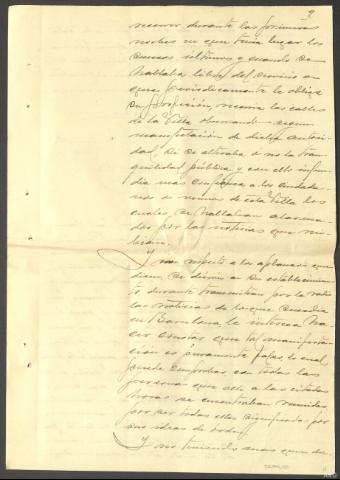 recorrer durante las primeras
noches en que tuvo lugar los
sucesos últimos y cuando se
hallaba libre del servicio en
que periodicamente le obliga
su profesión, recorria las calles
de la Villa observando segun
manifestación de dicha autori-
dad, si se alteraba o no la tran-
quilidad pública y con ello infun-
dia mas confianza a los ciudada-
nos de esta Villa los
cuales, se hallaban alarma-
dos por las noticias que
Y con respecto a los aplausos que
dicen, se dieron en su establecimien-
to durante transmitian por la radio
las noticias de lo que sucedia
en Barcelona, le interesa ha-
cer constar que tal manifesta-
cion es puramente falsa, lo cual
puede comprobar, con todas las
personas que alli a las citadas
horas se encontraban reunidas,
por ser todas ellas significadas por
sus ideas de orden.
Y no teniendo mas que de-